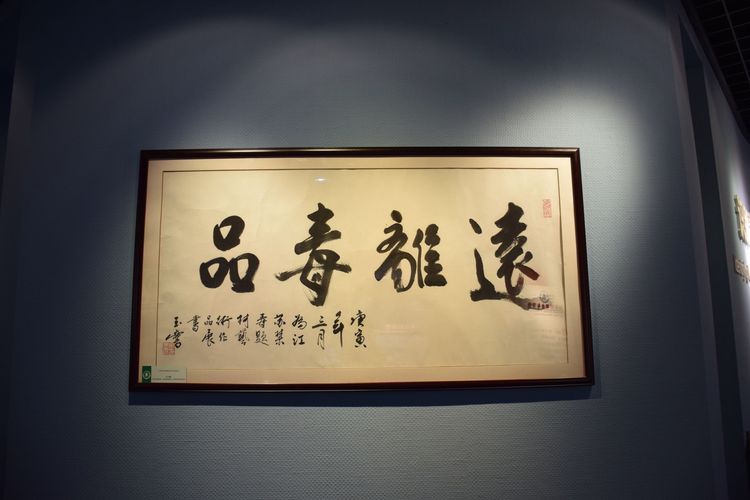 遠離毒品
庚寅
年
三月
為江
蘇禁
毒題
材藝
術作
品展
書